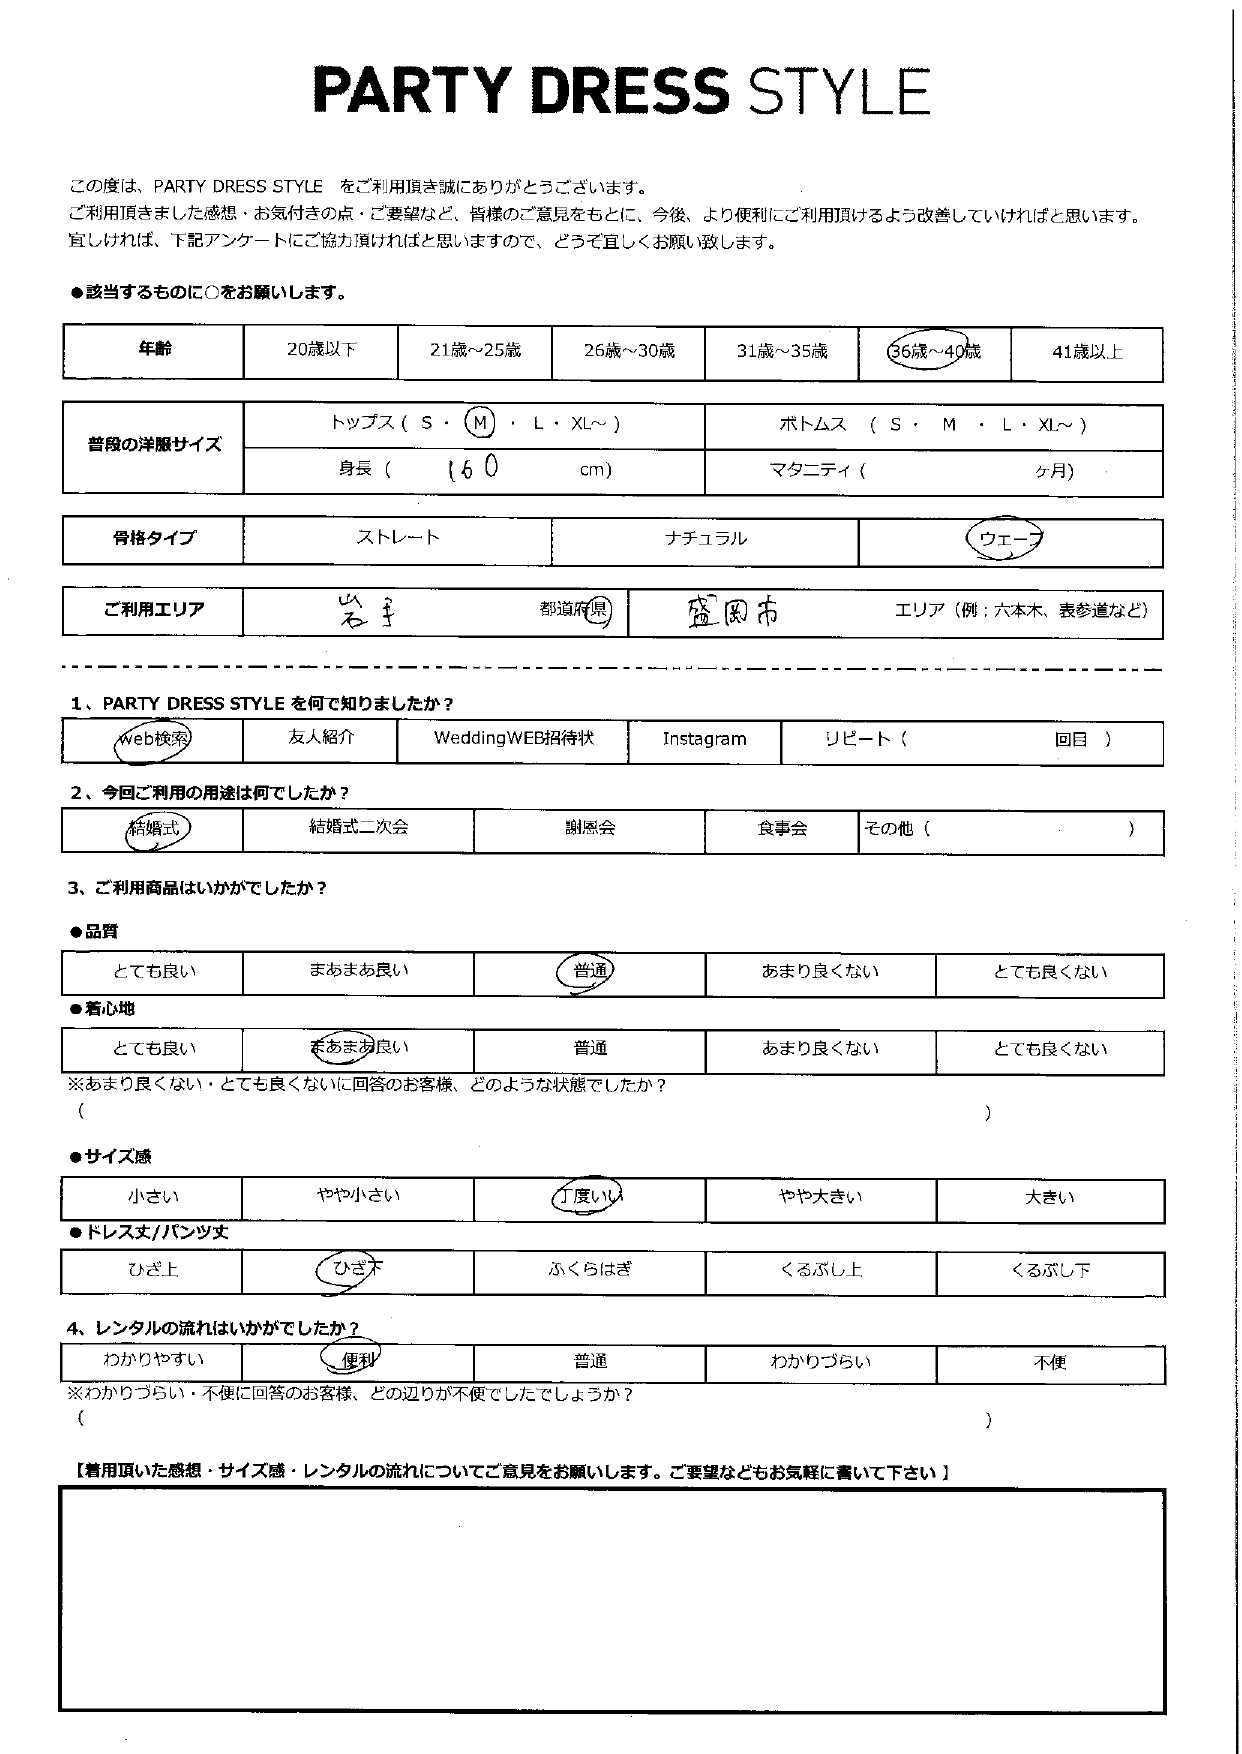 PARTY DRESS STYLE
この度は、PARTY DRESS STYLE をご利用頂き誠にありがとうございます。
ご利用頂きました感想・お気付きの点・ご要望など、皆様のご意見をもとに、今後、より便利にご利用頂けるよう改善していければと思います。
宜しければ、下記アンケートにご協力頂ければと思いますので、どうぞ宜しくお願い致します。
●該当するものに○をお願いします。
年齢 20歳以下 21歳～25歳 26歳～30歳 31歳～35歳 36歳～40歳 41歳以上
普段の洋服サイズ トップス ( S ・ M ・ L ・ XL～ ) ボトムス ( S ・ M ・ L ・ XL～ )
身長 ( 160 cm) マタニティ ( ヶ月)
骨格タイプ ストレート ナチュラル ウェーブ
ご利用エリア 岩手 都道府県 盛岡市 エリア（例：六本木、表参道など）
1、PARTY DRESS STYLE を何で知りましたか？
Web検索 友人紹介 WeddingWEB招待状 Instagram リピート ( 回目 )
2、今回ご利用の用途は何でしたか？
結婚式 結婚式二次会 謝恩会 食事会 その他 ( )
3、ご利用商品はいかがでしたか？
●品質
とても良い まあまあ良い 普通 あまり良くない とても良くない
●着心地
とても良い まあまあ良い 普通 あまり良くない とても良くない
※あまり良くない・とても良くないに回答のお客様、どのような状態でしたか？
( )
●サイズ感
小さい やや小さい 丁度いい やや大きい 大きい
●ドレス丈/パンツ丈
ひざ上 ひざ下 ふくらはぎ くるぶし上 くるぶし下
4、レンタルの流れはいかがでしたか？
わかりやすい 便利 普通 わかりづらい 不便
※わかりづらい・不便に回答のお客様、どの辺りが不便でしたでしょうか？
( )
【着用頂いた感想・サイズ感・レンタルの流れについてご意見をお願いします。ご要望などもお気軽に書いて下さい 】